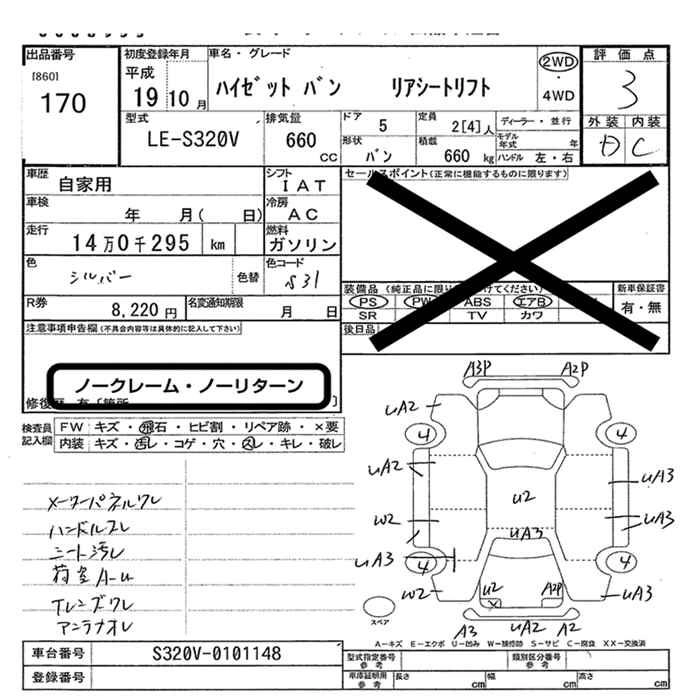 出品番号
[860]
170
初度登録年月
平成
19 10 月
車名・グレード
ハイゼット バン リアシートリフト
2WD
・
4WD
評価点
3
外装 内装
D C
型式
LE-S320V
排気量
660
CC
ドア
5
定員
2[4]人
ディーラー・並行
モデル年式 年
形状
バン
積載
660 kg
ハンドル 左・右
車歴
自家用
シフト
IAT
車検
年 月( 日)
冷房
AC
走行
14万0千295 km
燃料
ガソリン
色
シルバー
色替
色コード
S31
R券
8,220 円
名変通知期限
月 日
セールスポイント(正常に機能するものに限ります)
装備品
PS PW ABS エアB
SR TV カワ
後日品
新車保証書
有・無
注意事項申告欄(不具合内容等は具体的に記入して下さい)
ノークレーム・ノーリターン
検査員記入欄
FW キズ・飛石・ヒビ割・リペア跡・×要
内装 キズ・汚レ・コゲ・穴・スレ・キレ・破レ
メーターパネルワレ
ハンドルスレ
シート汚レ
荷室A-U
Tレンズワレ
アンテナオレ
A3P A2P
UA2
4 4
UA2
UA3
U2
W2
UA3
UA3
UA3
4 4
W2
U2
X
A2P
UA3
A3 UA2 A2
スペア
A-キズ E-エクボ U-凹み W-補修跡 S-サビ C-腐食 XX-交換済
車台番号
S320V-0101148
登録番号
型式指定番号
参考
類別区分番号
参考
車庫証明用
参考
長さ cm
幅 cm
高さ cm